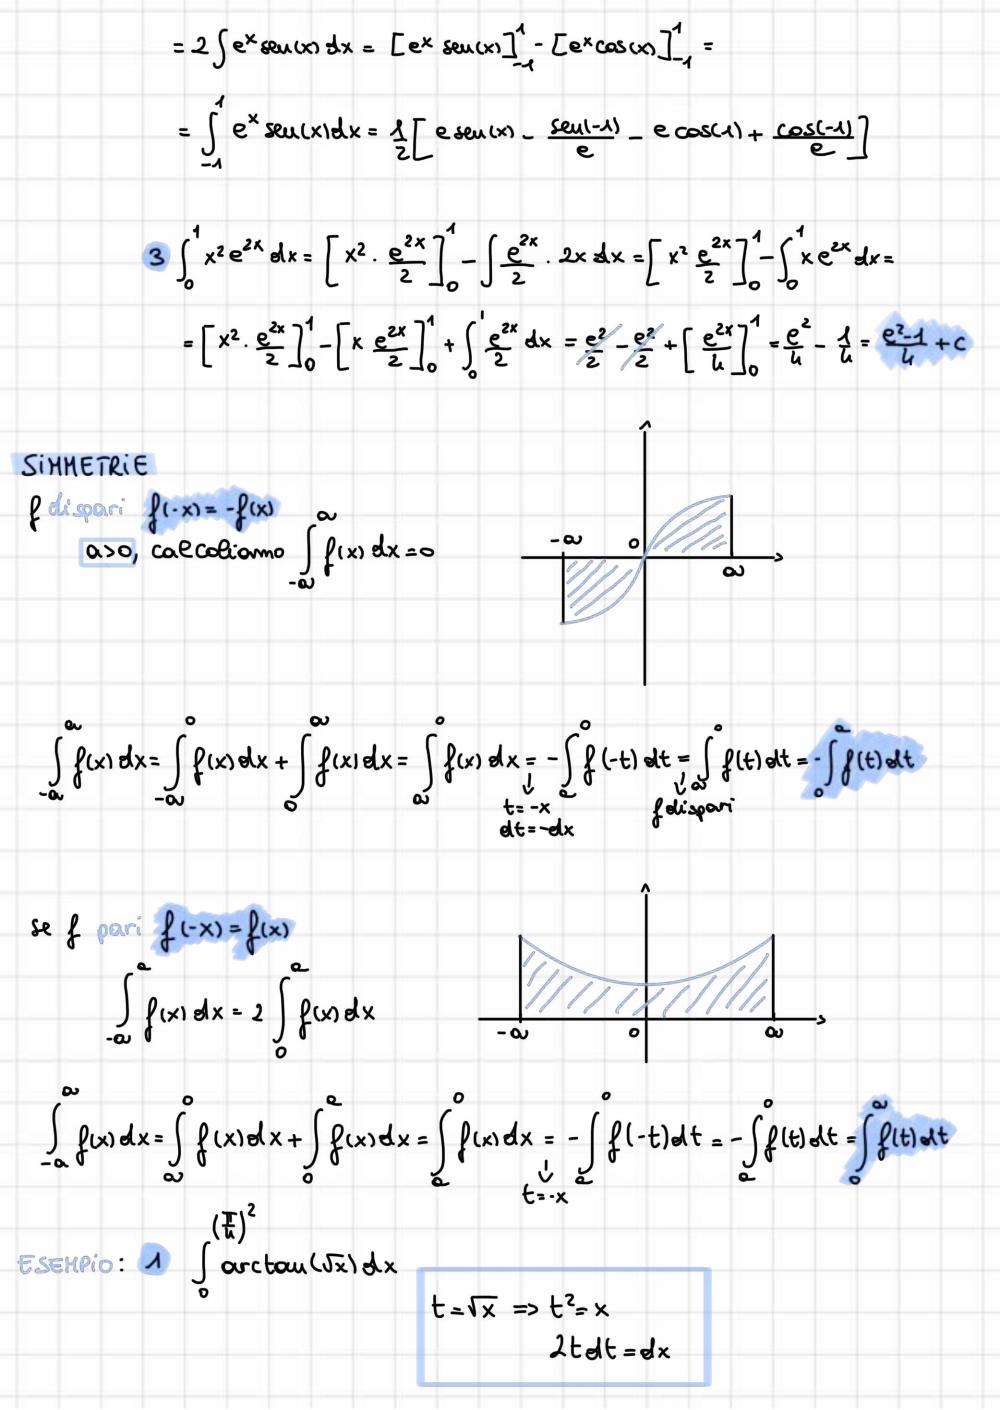 = 2 ∫ eˣ sen(x) dx = [eˣ sen(x)]₋₁¹ - [eˣ cos(x)]₋₁¹ =
= ∫₋₁¹ eˣ sen(x) dx = 1/2 [e sen(x) - sen(-1)/e - e cos(1) + cos(-1)/e]
3 ∫₀¹ x² e²ˣ dx = [x² · e²ˣ/2]₀¹ - ∫ e²ˣ/2 · 2x dx = [x² e²ˣ/2]₀¹ - ∫₀¹ x e²ˣ dx =
= [x² · e²ˣ/2]₀¹ - [x e²ˣ/2]₀¹ + ∫₀¹ e²ˣ/2 dx = e²/2 - e²/2 + [e²ˣ/4]₀¹ = e²/4 - 1/4 = e²-1/4 + c
SiMMETRiE
f dispari f(-x) = -f(x)
a>0, calcoliamo ∫₋ₐᵃ f(x) dx = 0
-a 0 a
∫₋ₐᵃ f(x) dx = ∫₋ₐ⁰ f(x) dx + ∫₀ᵃ f(x) dx = ∫ₐ⁰ f(x) dx = -∫ₐ⁰ f(-t) dt = ∫ₐ⁰ f(t) dt = -∫₀ᵃ f(t) dt
↓ ↓
t = -x f dispari
dt = -dx
se f pari f(-x) = f(x)
∫₋ₐᵃ f(x) dx = 2 ∫₀ᵃ f(x) dx
-a 0 a
∫₋ₐᵃ f(x) dx = ∫ₐ⁰ f(x) dx + ∫₀ᵃ f(x) dx = ∫ₐ⁰ f(x) dx = -∫ₐ⁰ f(-t) dt = -∫ₐ⁰ f(t) dt = ∫₀ᵃ f(t) dt
↓
t = -x
ESEMPiO: 1 ∫₀^(π/4)² arctan(√x) dx
t = √x => t² = x
2t dt = dx